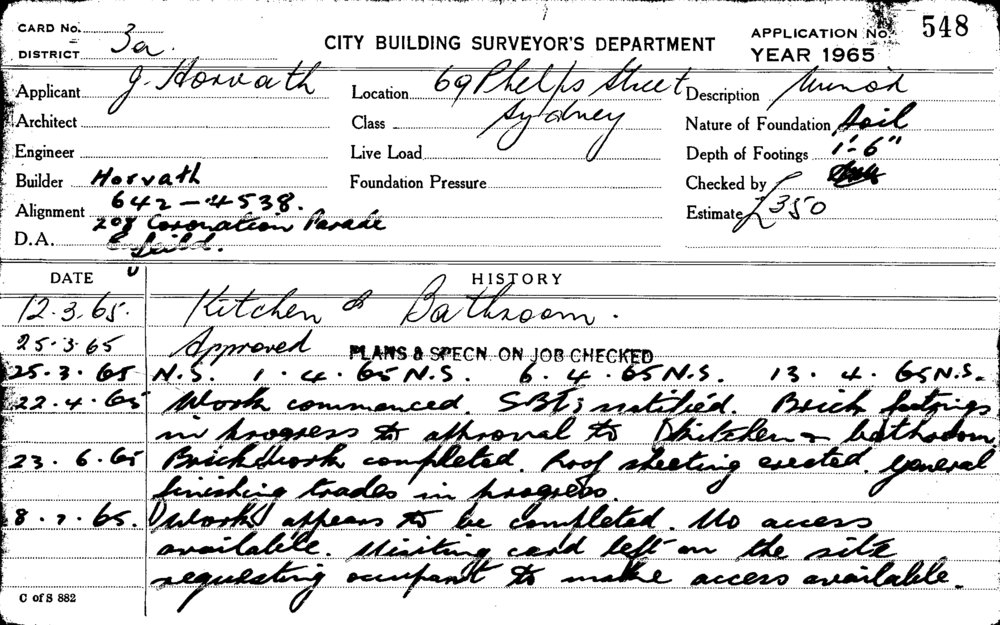 CARD No. 3a.
DISTRICT
CITY BUILDING SURVEYOR'S DEPARTMENT
APPLICATION No. 548
YEAR 1965
Applicant J. Horvath
Location 69 Phelps Street
Sydney
Description Minor
Architect
Class
Nature of Foundation Soil
Engineer
Live Load
Depth of Footings 1'-6"
Builder Horvath
Foundation Pressure
Checked by
Alignment 642-4538.
Estimate £350
208 Coronation Parade
D.A. Enfield.
DATE HISTORY
12.3.65. Kitchen & Bathroom.
25.3.65 Approved PLANS & SPECN. ON JOB CHECKED
25.3.65 N.S. 1.4.65 N.S. 6.4.65 N.S. 13.4.65 N.S.
22.4.65 Work commenced. notified. Brick footings
in progress to approval to kitchen & bathroom.
23.6.65 Brickwork completed. Roof sheeting erected. General
finishing trades in progress.
8.7.65. Work appears to be completed. No access
available. Visiting card left on the site
requesting occupant to make access available.
C of S 882